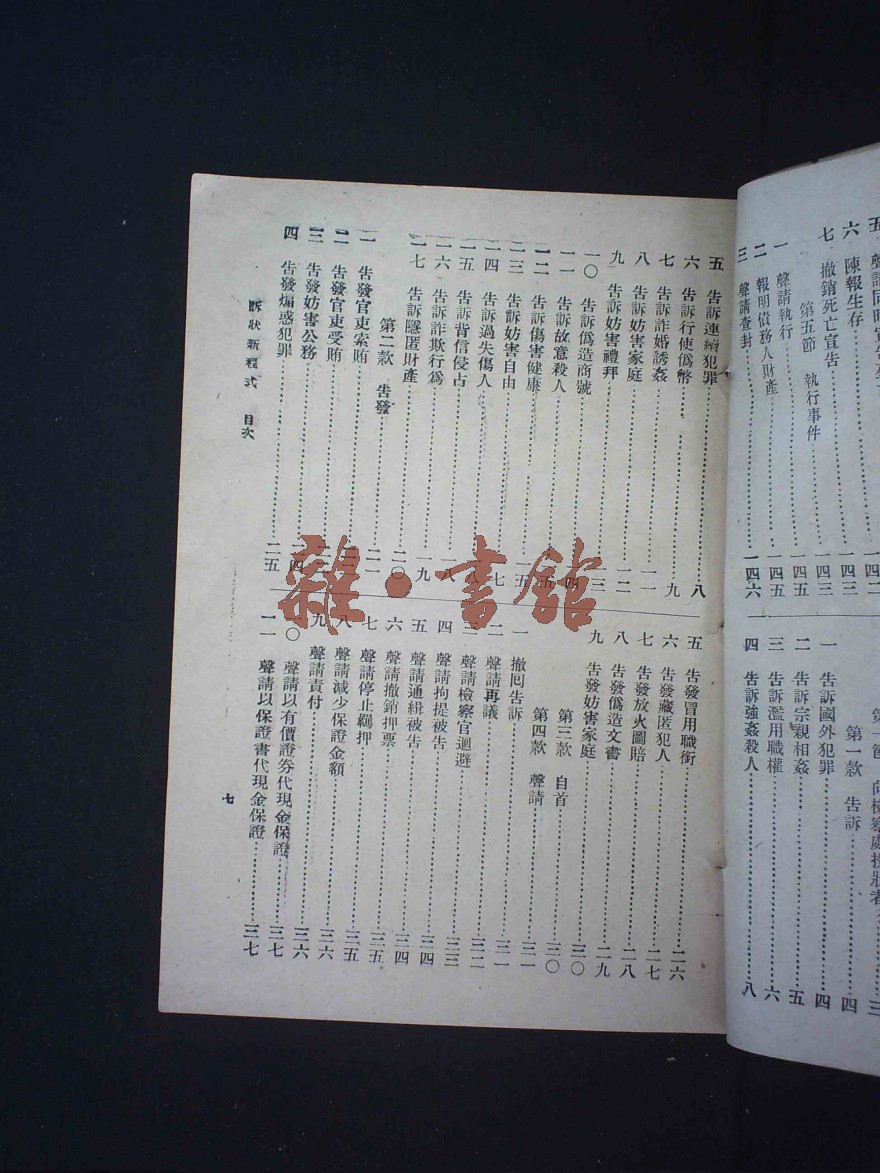 六 陳報生存 一四三
七 撤銷死亡宣告 一四三
第五節 執行事件
一 聲請執行 一四五
二 報明債務人財產 一四五
三 聲請查封 一四六
第一款 告訴 四
一 告訴國外犯罪 四
二 告訴宗親相姦 五
三 告訴濫用職權 六
四 告訴強姦殺人 八
五 告訴連續犯罪 八
六 告訴行使僞幣 九
七 告訴詐婚誘姦 一一
八 告訴妨害家庭 一二
九 告訴妨害禮拜
一〇 告訴僞造商號
一一 告訴故意殺人
一二 告訴傷害健康
一三 告訴妨害自由
一四 告訴過失傷人
一五 告訴背信侵占 一八
一六 告訴詐欺行爲 一九
一七 告訴隱匿財產 二〇
第二款 告發
一 告發官吏索賄
二 告發官吏受賄
三 告發妨害公務
四 告發煽惑犯罪 二五
五 告發冒用職銜 二六
六 告發藏匿犯人 二七
七 告發放火圖賠 二八
八 告發僞造文書 二九
九 告發妨害家庭 三〇
第三款 自首 三〇
第四款 聲請 三一
一 撤回告訴 三一
二 聲請再議 三二
三 聲請檢察官迴避 三三
四 聲請拘提被告 三四
五 聲請通緝被告 三四
六 聲請撤銷押票 三五
七 聲請停止羈押 三五
八 聲請減少保證金額 三六
九 聲請責付 三六
一〇 聲請以有價證券代現金保證 三七
一一 聲請以保證書代現金保證 三七
訴狀新程式 目次
七
雜·書館